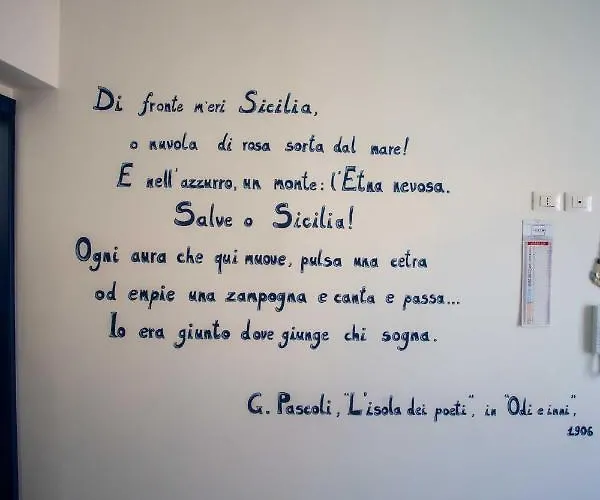 Di fronte m'eri Sicilia,
o nuvola di rosa sorta dal mare!
E nell'azzurro, un monte: l'Etna nevosa.
Salve o Sicilia!
Ogni aura che qui muove, pulsa una cetra
od empie una zampogna e canta e passa...
Io era giunto dove giunge chi sogna.
G. Pascoli, "L'isola dei poeti", in "Odi e inni",
1906